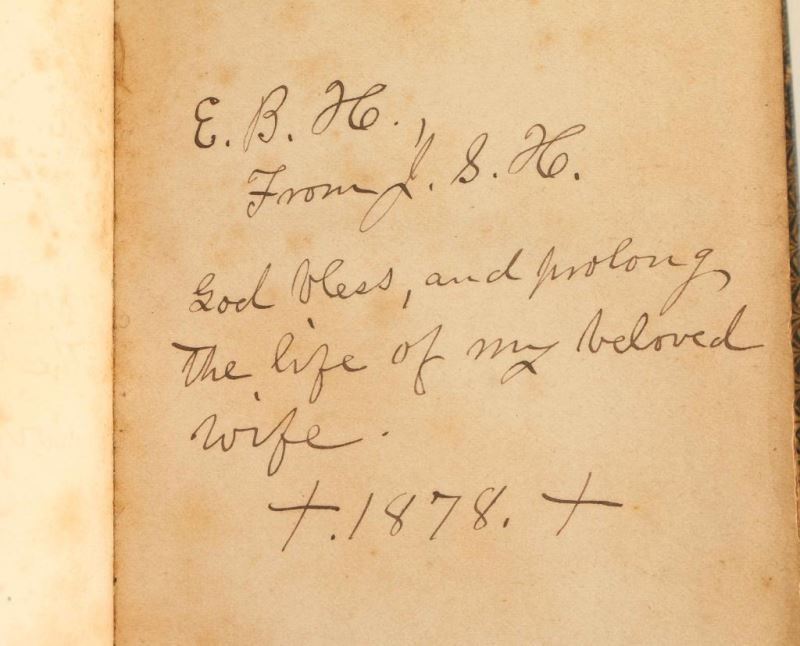 E. B. H.,
From J. S. H.
God bless, and prolong
the life of my beloved
wife.
+. 1878. +